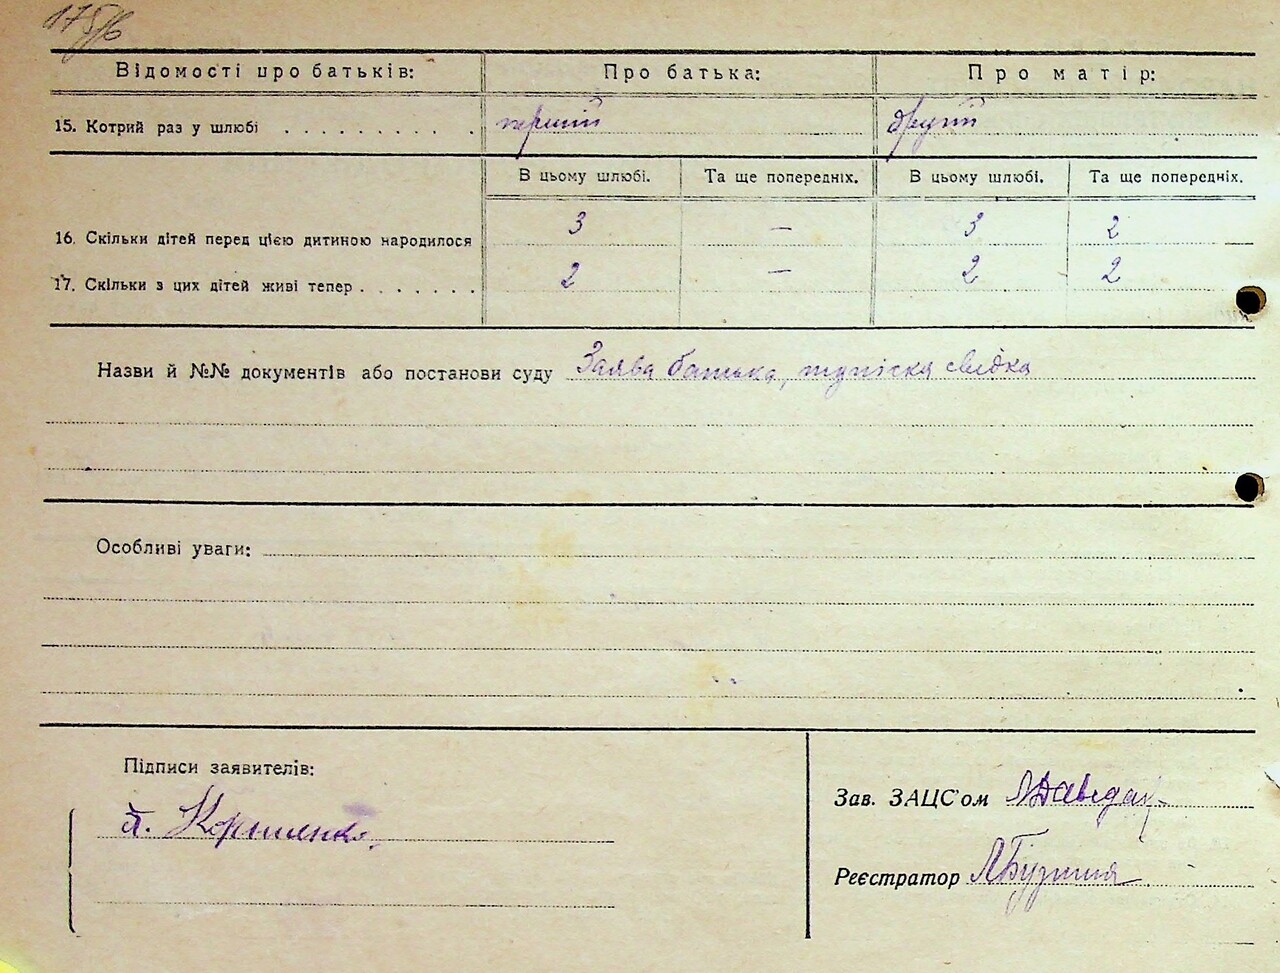 175/6
Відомості про батьків: Про батька: Про матір:
15. Котрий раз у шлюбі . . . . . . . . . . перший другий
В цьому шлюбі. Та ще попередніх. В цьому шлюбі. Та ще попередніх.
16. Скільки дітей перед цією дитиною народилося 3 — 3 2
17. Скільки з цих дітей живі тепер . . . . . . . 2 — 2 2
Назви й №№ документів або постанови суду Заява батька, свідка
Особливі уваги:
Підписи заявителів:
Зав. ЗАЦС'ом
Реєстратор